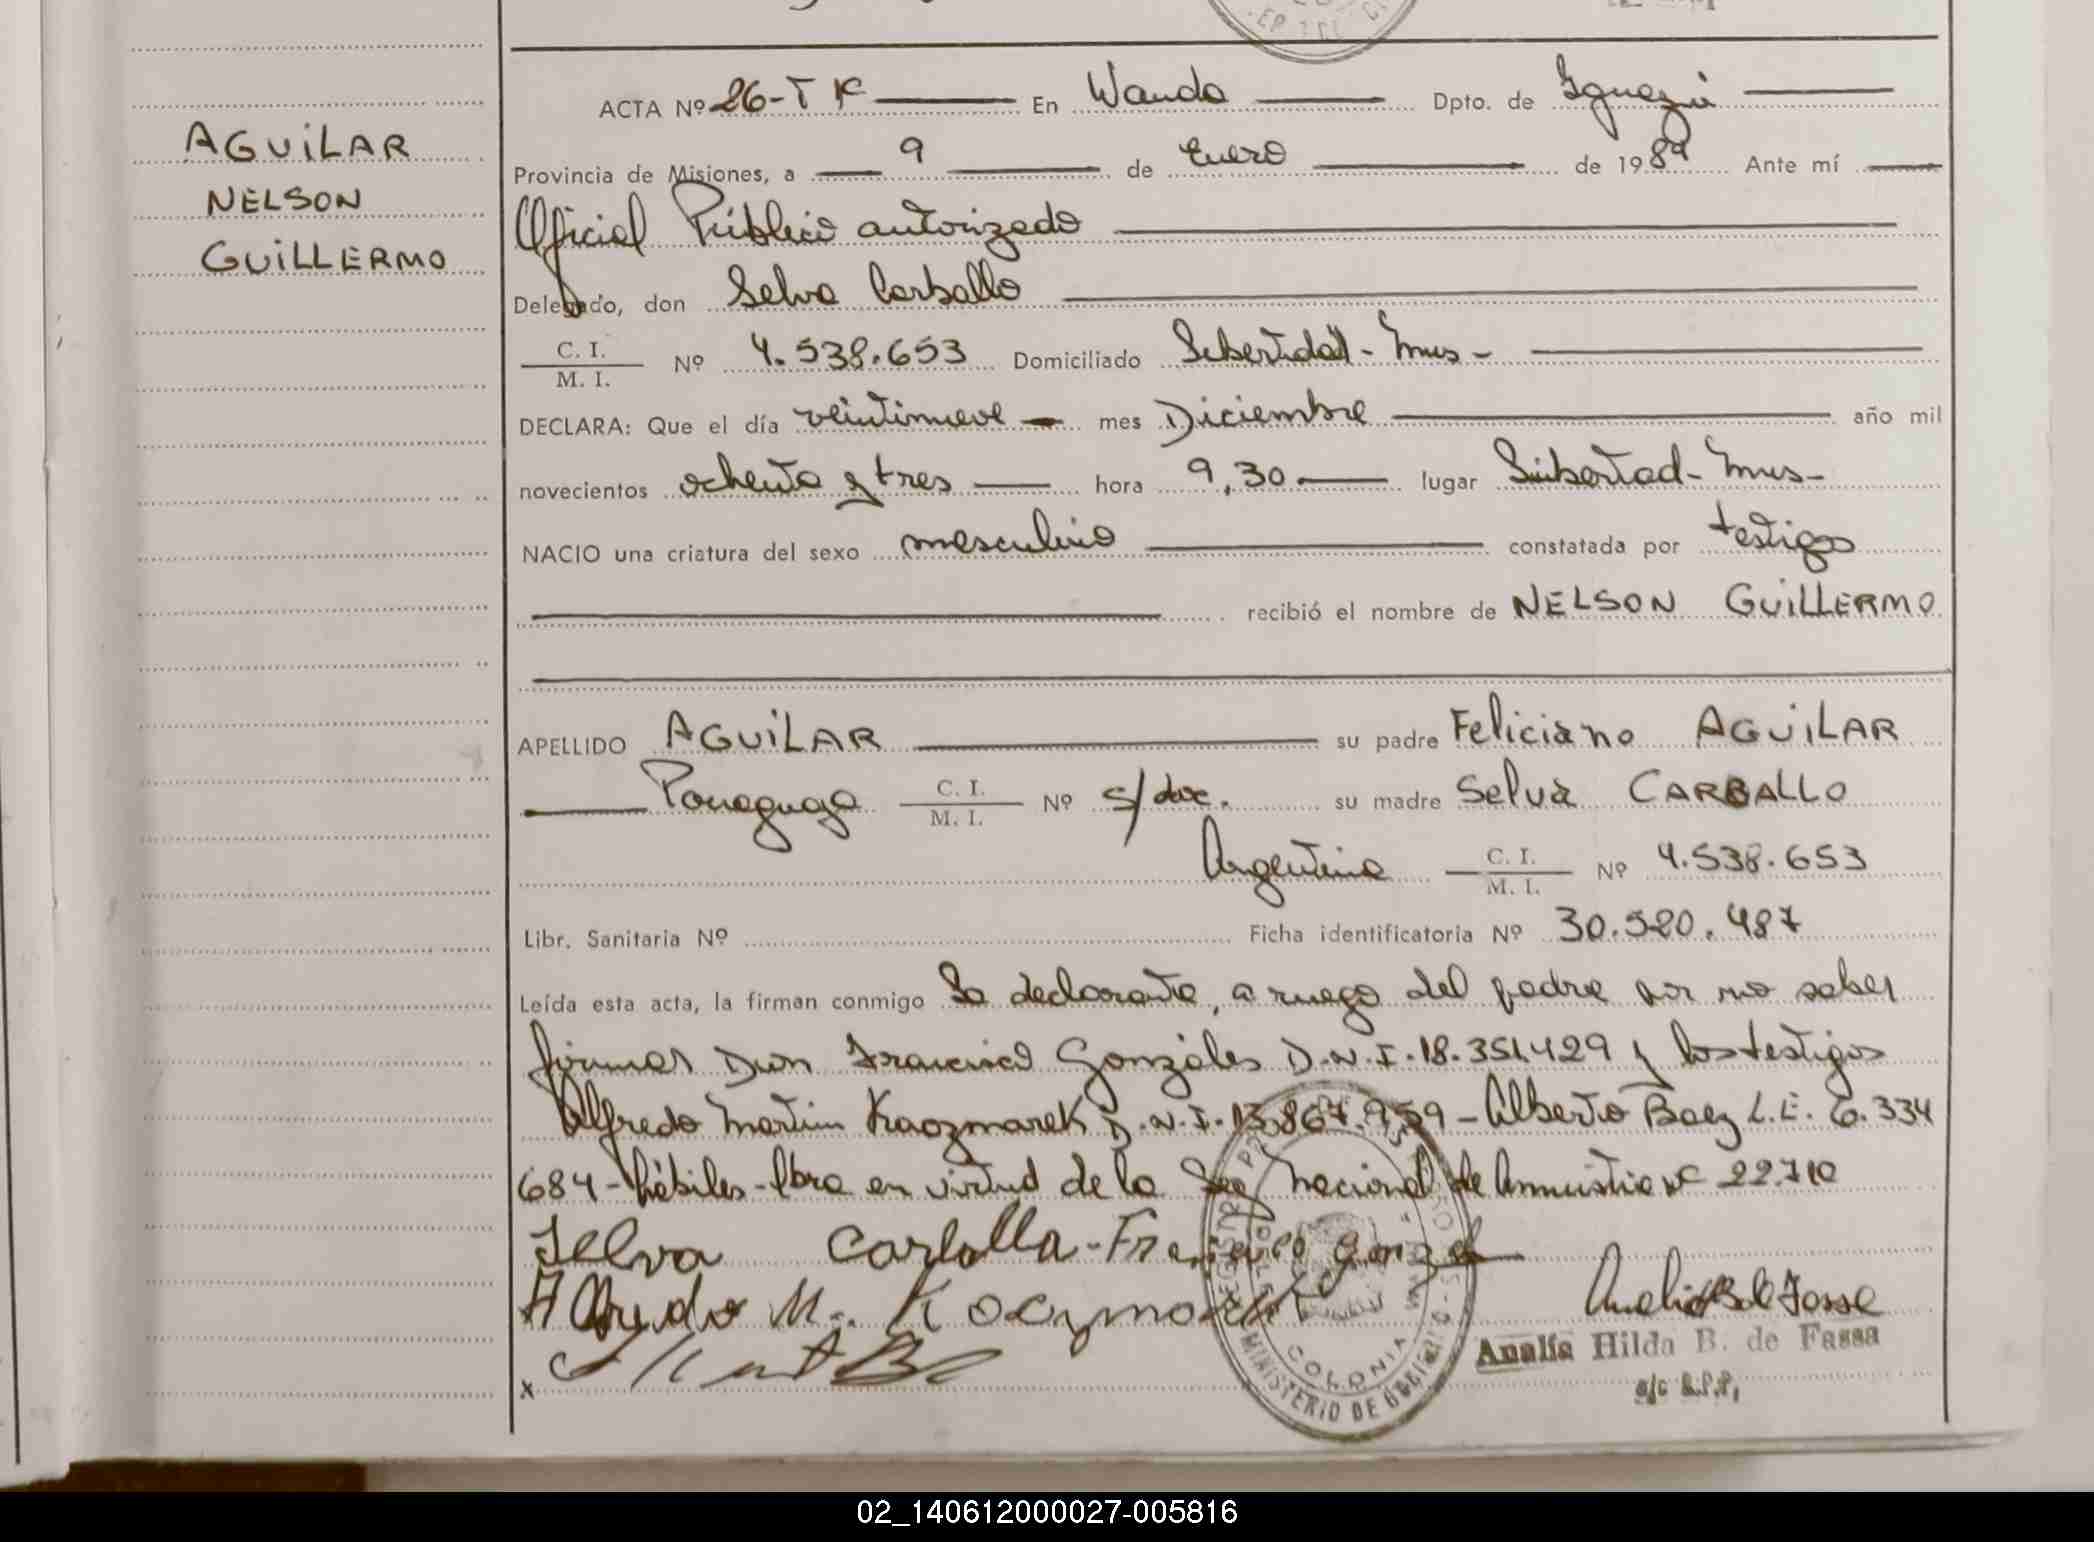 ACTA Nº 26-T K En Wanda Dpto. de Iguazú
AGUILAR
NELSON
GUILLERMO
Provincia de Misiones, a 9 de Enero de 1989 Ante mí
Oficial Público autorizado
Delegado, don Selva Carballo
C. I.
M. I. Nº 4.538.653 Domiciliado Libertad - Mnes -
DECLARA: Que el día veintinueve mes Diciembre año mil
novecientos ochenta y tres hora 9,30 lugar Libertad - Mnes -
NACIO una criatura del sexo masculino constatada por testigos
recibió el nombre de NELSON GUILLERMO
APELLIDO AGUILAR su padre Feliciano AGUILAR
Paraguayo C. I. M. I. Nº s/doc. su madre Selva CARBALLO
Argentina C. I. M. I. Nº 4.538.653
Libr. Sanitaria Nº Ficha identificatoria Nº 30.520.487
Leída esta acta, la firman conmigo La declarante, a ruego del padre por no saber
firmar Don Francisco Gonzáles D.N.I. 18.351.429 y los testigos
Alfredo Martin Kaozmarek D.N.I. 13.867.959 - Alberto Baez L.E. 6.334
684 - hábiles - Obra en virtud de la Ley Nacional de Amnistia nº 22.710
Selva Carballa - Francisco Gonzal
Alfredo M. Koczmarek
Analía Hilda B. de Fassa
a/c R.P.P.
COLONIA WANDA
MINISTERIO DE GOBIERNO
x
02_140612000027-005816